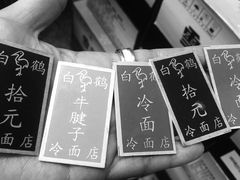 白鹤
拾元
冷面店
白鹤
牛腱子
冷面店
白鹤
冷面
冷面店
白鹤
拾元
冷面店
白
冷面
冷面